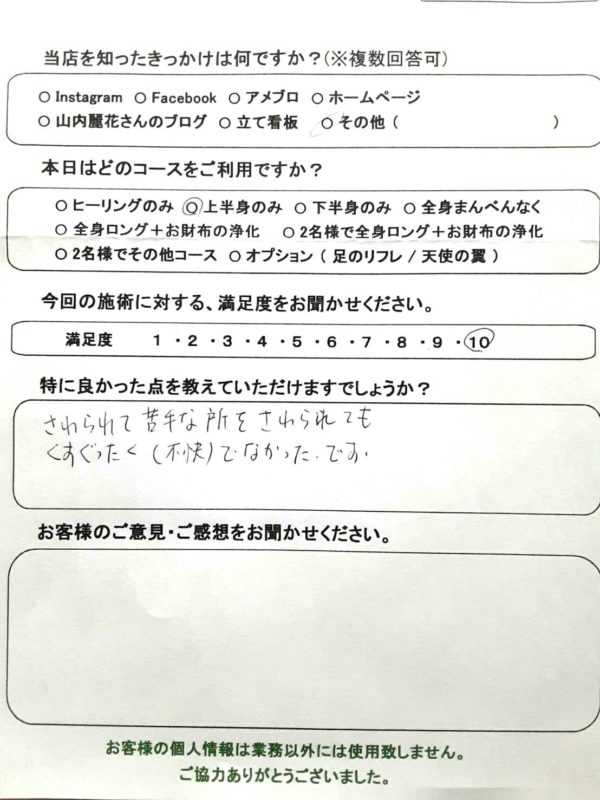 当店を知ったきっかけは何ですか?(※複数回答可)
○ Instagram ○ Facebook ○ アメブロ ○ ホームページ
○ 山内麗花さんのブログ ○ 立て看板 ○ その他 ( )
本日はどのコースをご利用ですか?
○ ヒーリングのみ ○ 上半身のみ ○ 下半身のみ ○ 全身まんべんなく
○ 全身ロング+お財布の浄化 ○ 2名様で全身ロング+お財布の浄化
○ 2名様でその他コース ○ オプション ( 足のリフレ / 天使の翼 )
今回の施術に対する、満足度をお聞かせください。
満足度 1 ・ 2 ・ 3 ・ 4 ・ 5 ・ 6 ・ 7 ・ 8 ・ 9 ・ 10
特に良かった点を教えていただけますでしょうか?
さわられて苦手な所をさわられても
くすぐったく (不快) でなかった.です.
お客様のご意見・ご感想をお聞かせください。
お客様の個人情報は業務以外には使用致しません。
ご協力ありがとうございました。